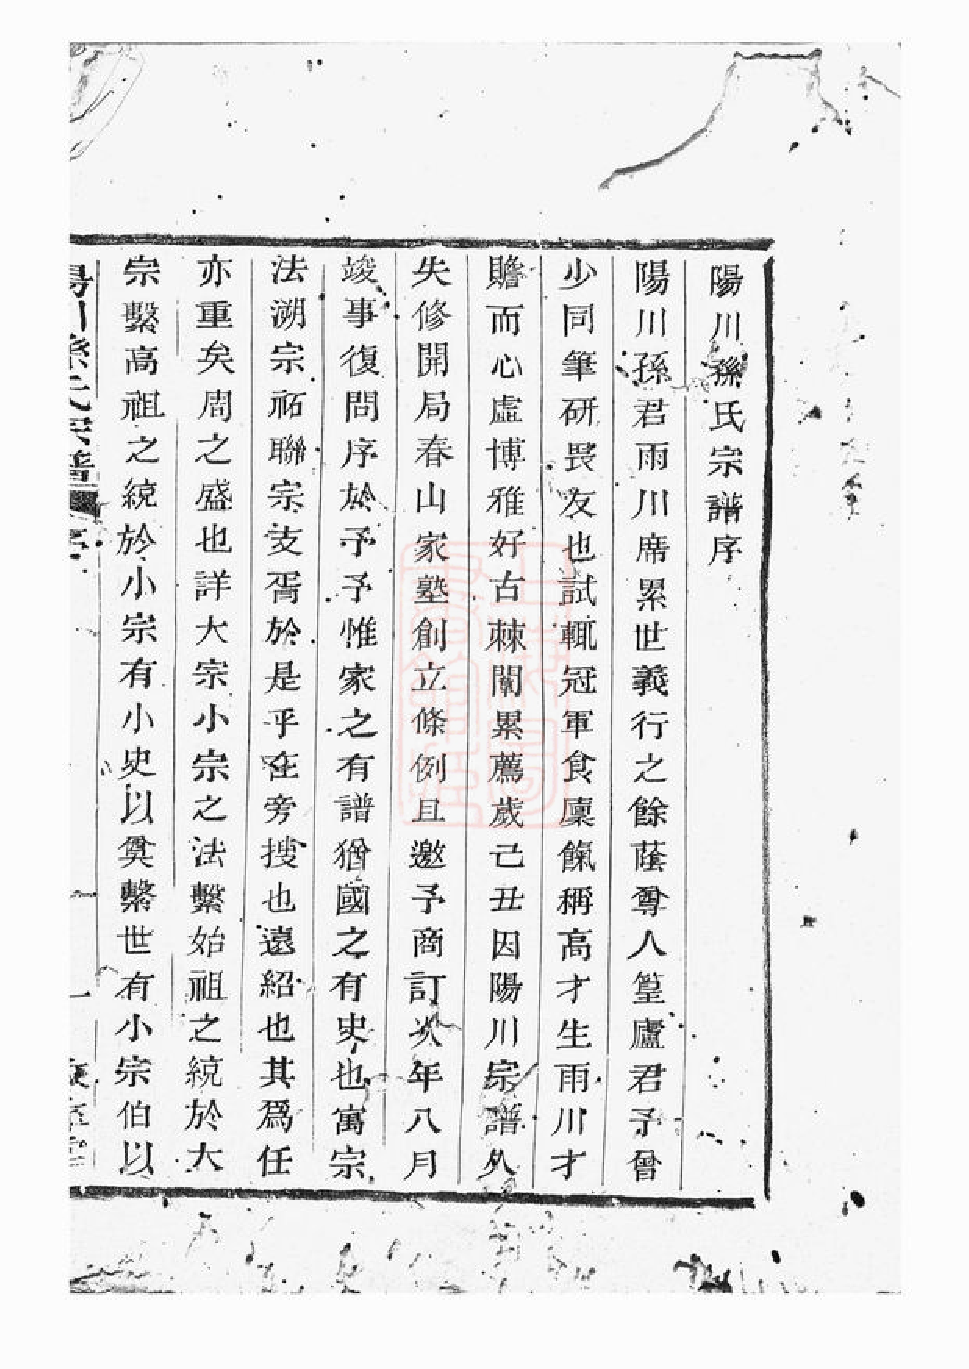 陽川孫氏宗譜序
陽川孫君雨川席累世義行之餘蔭尊人篁廬君予曾
少同筆研畏友也試輒冠軍食廩餼稱高才生雨川才
贍而心虛博雅好古棘闈累薦歲己丑因陽川宗譜久
失修開局春山家塾創立條例且邀予商訂次年八月
竣事復問序於予予惟家之有譜猶國之有史也寓宗
法溯宗祏聯宗支胥於是乎在旁搜也遠紹也其爲任
亦重矣周之盛也詳大宗小宗之法繫始祖之統於大
宗繫高祖之統於小宗有小史以奠繫世有小宗伯以
陽川孫氏宗譜 序 一